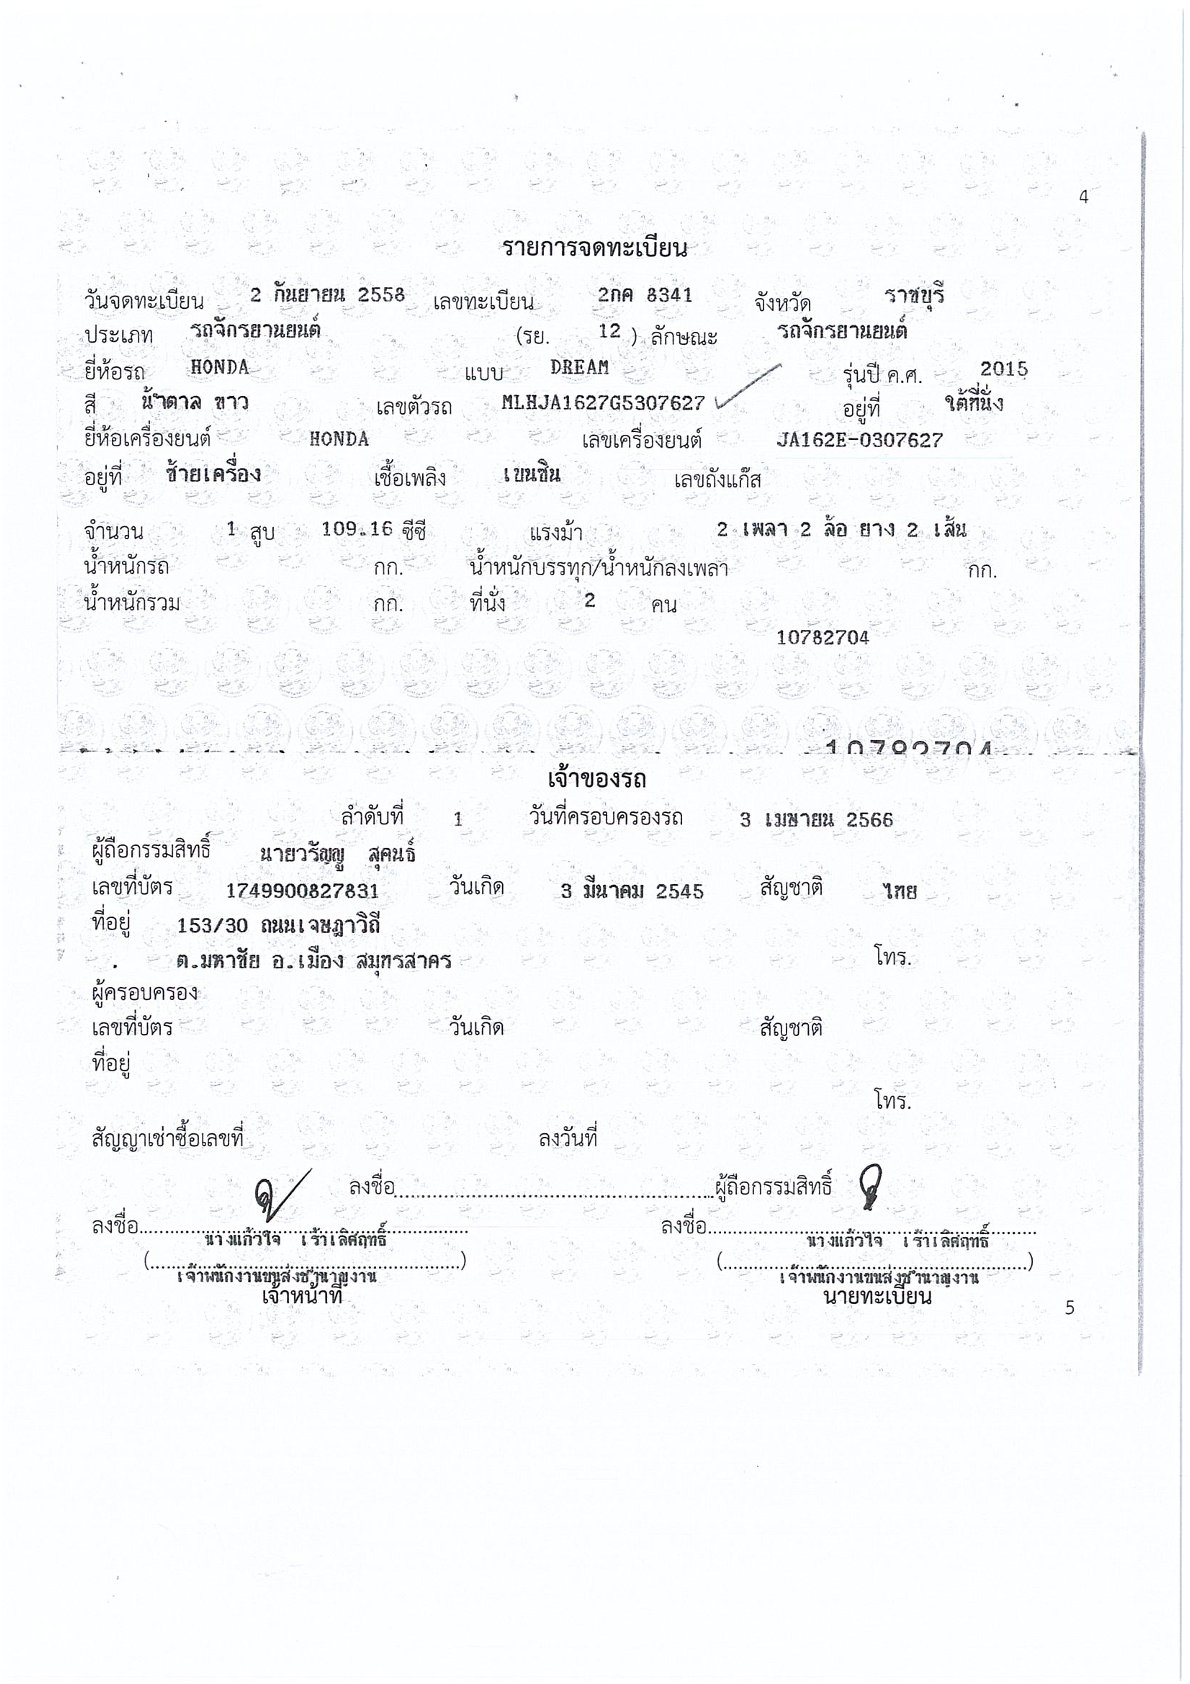 4
รายการจดทะเบียน
วันจดทะเบียน 2 กันยายน 2558 เลขทะเบียน 2กค 8341 จังหวัด ราชบุรี
ประเภท รถจักรยานยนต์ (รย. 12 ) ลักษณะ รถจักรยานยนต์
ยี่ห้อรถ HONDA แบบ DREAM รุ่นปี ค.ศ. 2015
สี น้ำตาล ขาว เลขตัวรถ MLHJA1627G5307627 อยู่ที่ ใต้ที่นั่ง
ยี่ห้อเครื่องยนต์ HONDA เลขเครื่องยนต์ JA162E-0307627
อยู่ที่ ซ้ายเครื่อง เชื้อเพลิง เบนซิน เลขถังแก๊ส
จำนวน 1 สูบ 109.16 ซีซี แรงม้า 2 เพลา 2 ล้อ ยาง 2 เส้น
น้ำหนักรถ กก. น้ำหนักบรรทุก/น้ำหนักลงเพลา กก.
น้ำหนักรวม กก. ที่นั่ง 2 คน
10782704
10782704
เจ้าของรถ
ลำดับที่ 1 วันที่ครอบครองรถ 3 เมษายน 2566
ผู้ถือกรรมสิทธิ์ นายวรัญญู สุคนธ์
เลขที่บัตร 1749900827831 วันเกิด 3 มีนาคม 2545 สัญชาติ ไทย
ที่อยู่ 153/30 ถนนเจษฎาวิถี
ต.มหาชัย อ.เมือง สมุทรสาคร โทร.
ผู้ครอบครอง
เลขที่บัตร วันเกิด สัญชาติ
ที่อยู่
โทร.
สัญญาเช่าซื้อเลขที่ ลงวันที่
ลงชื่อ ผู้ถือกรรมสิทธิ์
ลงชื่อ ลงชื่อ
นางแก้วใจ เร้าเลิศฤทธิ์ นางแก้วใจ เร้าเลิศฤทธิ์
เจ้าพนักงานขนส่งชำนาญงาน เจ้าพนักงานขนส่งชำนาญงาน
เจ้าหน้าที่ นายทะเบียน
5